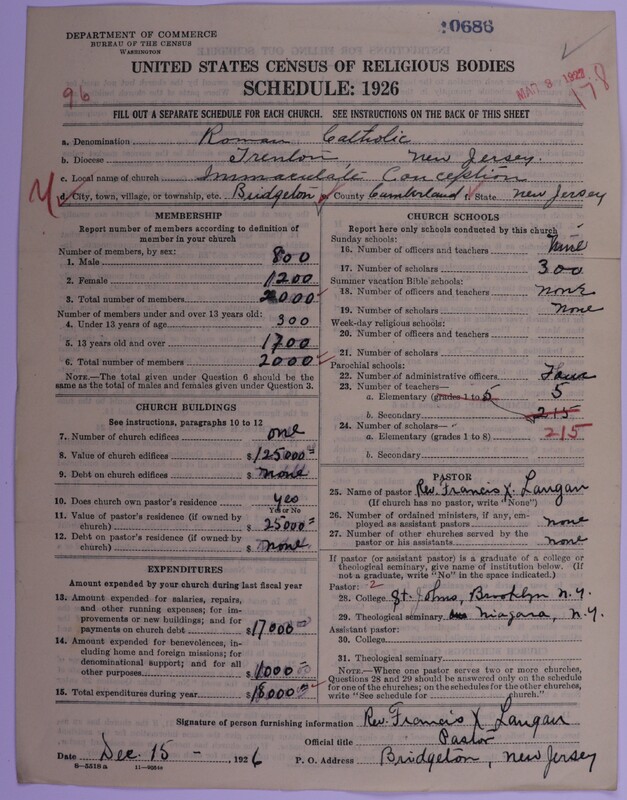 DEPARTMENT OF COMMERCE
BUREAU OF THE CENSUS
WASHINGTON
10686
UNITED STATES CENSUS OF RELIGIOUS BODIES
SCHEDULE: 1926
96
MAR 8 1927
178
FILL OUT A SEPARATE SCHEDULE FOR EACH CHURCH. SEE INSTRUCTIONS ON THE BACK OF THIS SHEET
a. Denomination Roman Catholic
b. Diocese Trenton, New Jersey.
c. Local name of church Immaculate Conception
d. City, town, village, or township, etc. Bridgeton e. County Cumberland f. State New Jersey
MEMBERSHIP
Report number of members according to definition of member in your church
Number of members, by sex:
1. Male 800
2. Female 1200
3. Total number of members 2000
Number of members under and over 13 years old:
4. Under 13 years of age 300
5. 13 years old and over 1700
6. Total number of members 2000
NOTE.—The total given under Question 6 should be the same as the total of males and females given under Question 3.
CHURCH BUILDINGS
See instructions, paragraphs 10 to 12
7. Number of church edifices one
8. Value of church edifices $125000
9. Debt on church edifices $ none
10. Does church own pastor's residence yes
Yes or No
11. Value of pastor's residence (if owned by church) $25000
12. Debt on pastor's residence (if owned by church) $ none
EXPENDITURES
Amount expended by your church during last fiscal year
13. Amount expended for salaries, repairs, and other running expenses; for improvements or new buildings; and for payments on church debt $17000
14. Amount expended for benevolences, including home and foreign missions; for denominational support; and for all other purposes $1000
15. Total expenditures during year $18000
CHURCH SCHOOLS
Report here only schools conducted by this church
Sunday schools:
16. Number of officers and teachers
17. Number of scholars 300
Summer vacation Bible schools:
18. Number of officers and teachers none
19. Number of scholars None
Week-day religious schools:
20. Number of officers and teachers
21. Number of scholars
Parochial schools:
22. Number of administrative officers Four
23. Number of teachers—
a. Elementary (grades 1 to 8) 5 5
b. Secondary 215
24. Number of scholars—
a. Elementary (grades 1 to 8) 215
b. Secondary
PASTOR
25. Name of pastor Rev. Francis X. Langan
(If church has no pastor, write "None")
26. Number of ordained ministers, if any, employed as assistant pastors none
27. Number of other churches served by the pastor or his assistants none
If pastor (or assistant pastor) is a graduate of a college or theological seminary, give name of institution below. (If not a graduate, write "No" in the space indicated.)
Pastor: 2
28. College St. Johns, Brooklyn N.Y.
29. Theological seminary Niagara, N.Y.
Assistant pastor:
30. College
31. Theological seminary
NOTE.—Where one pastor serves two or more churches, Questions 28 and 29 should be answered only on the schedule for one of the churches; on the schedules for the other churches, write "See schedule for church."
Signature of person furnishing information Rev. Francis X Langan
Official title Pastor
Date Dec. 15 — , 1926 P. O. Address Bridgeton, New Jersey